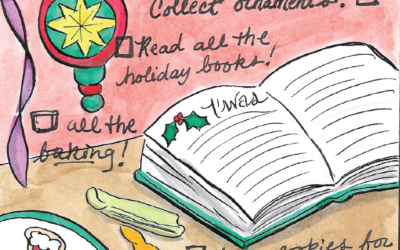 Collect ornaments!
Read all the
holiday books!
T'was
all the
baking!
cookies for